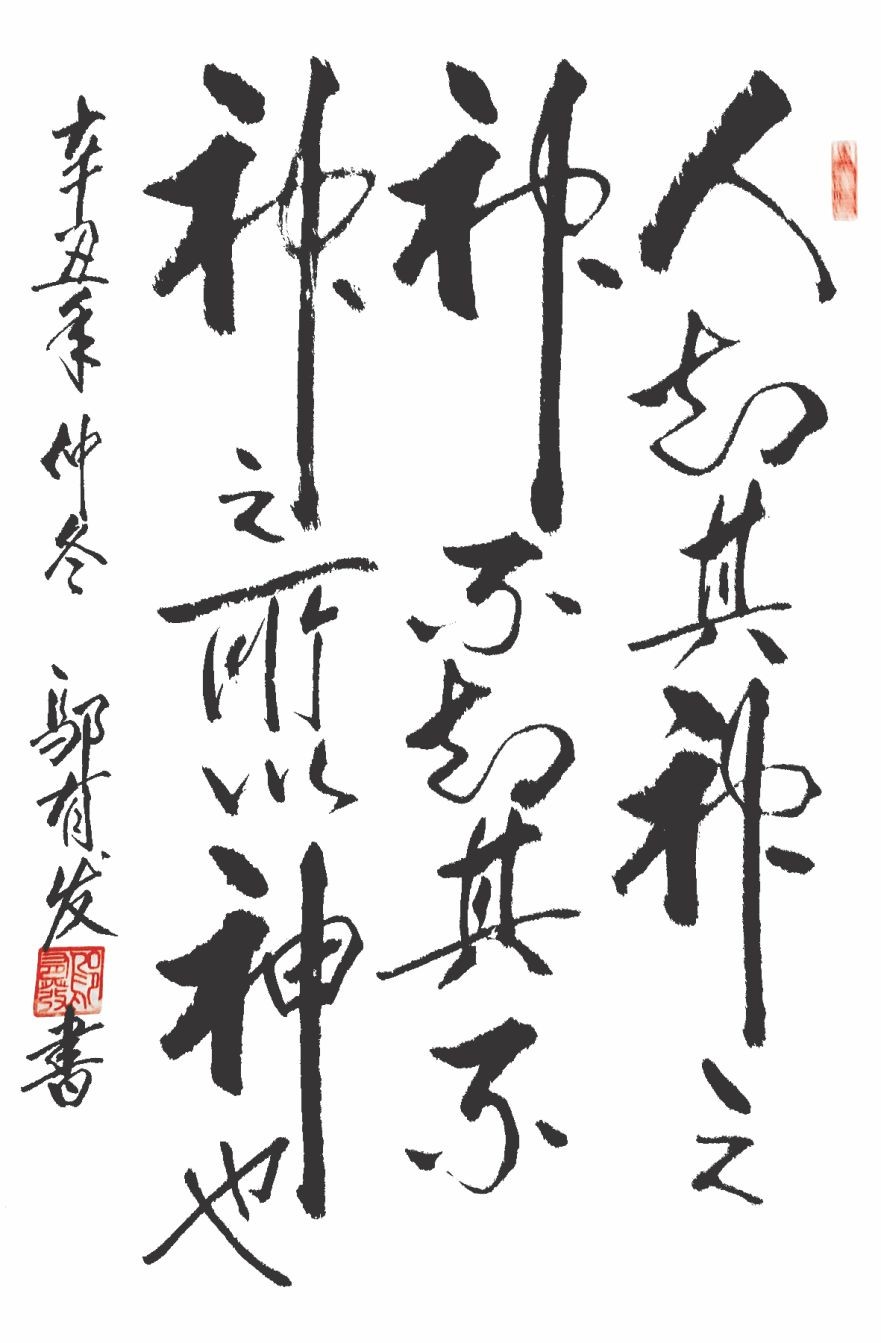 人知其神之
神不知其不
神之所以神也
辛丑年仲冬 邬有发书